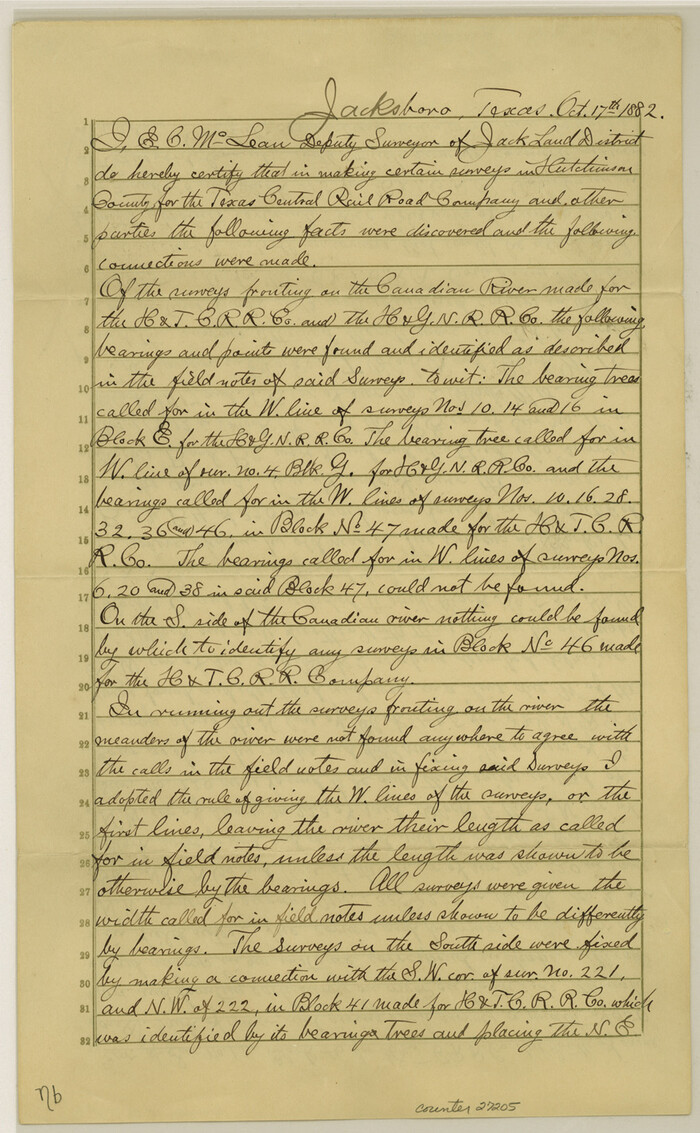 Jacksboro, Texas. Oct. 17th 1882.
1
I, E. C. McLean Deputy Surveyor of Jack Land District
2
do hereby certify that in making certain surveys in Hutchinson
3
County for the Texas Central Rail Road Company and other
4
parties the following facts were discovered and the following
5
connections were made.
6
Of the surveys fronting on the Canadian River made for
7
the H&T.C.R.R.Co. and the H&G.N.R.R.Co. the following
8
bearings and points were found and identified as described
9
in the field notes of said Surveys. to wit: The bearing trees
10
called for in the W. line of surveys Nos 10. 14 and 16 in
11
Block E, for the H&G.N.R.R.Co. The bearing tree called for in
12
W. line of sur. no. 4. Blk. G. for H&G.N.R.R.Co. and the
13
bearings called for in the W. lines of surveys Nos. 10. 16. 28.
14
32. 36 and 46. in Block No 47 made for the H&T.C.R.
15
R.Co. The bearings called for in W. lines of surveys Nos.
16
6. 20 and 38 in said Block 47, could not be found.
17
On the S. side of the Canadian river nothing could be found
18
by which to identify any surveys in Block No 46 made
19
for the H&T.C.R.R. Company.
20
In running out the surveys fronting on the river the
21
meanders of the river were not found anywhere to agree with
22
the calls in the field notes and in fixing said Surveys I
23
adopted the rule of giving the W. lines of the surveys, or the
24
first lines, leaving the river their length as called
25
for in field notes, unless the length was shown to be
26
otherwise by the bearings. All surveys were given the
27
width called for in field notes unless shown to be differently
28
by bearings. The Surveys on the South side were fixed
29
by making a connection with the S.W. cor. of sur. no. 221,
30
and N.W. of 222, in Block 41 made for H&T.C.R.R.Co. which
31
was identified by its bearing trees and placing the N.E
32
counter 27205